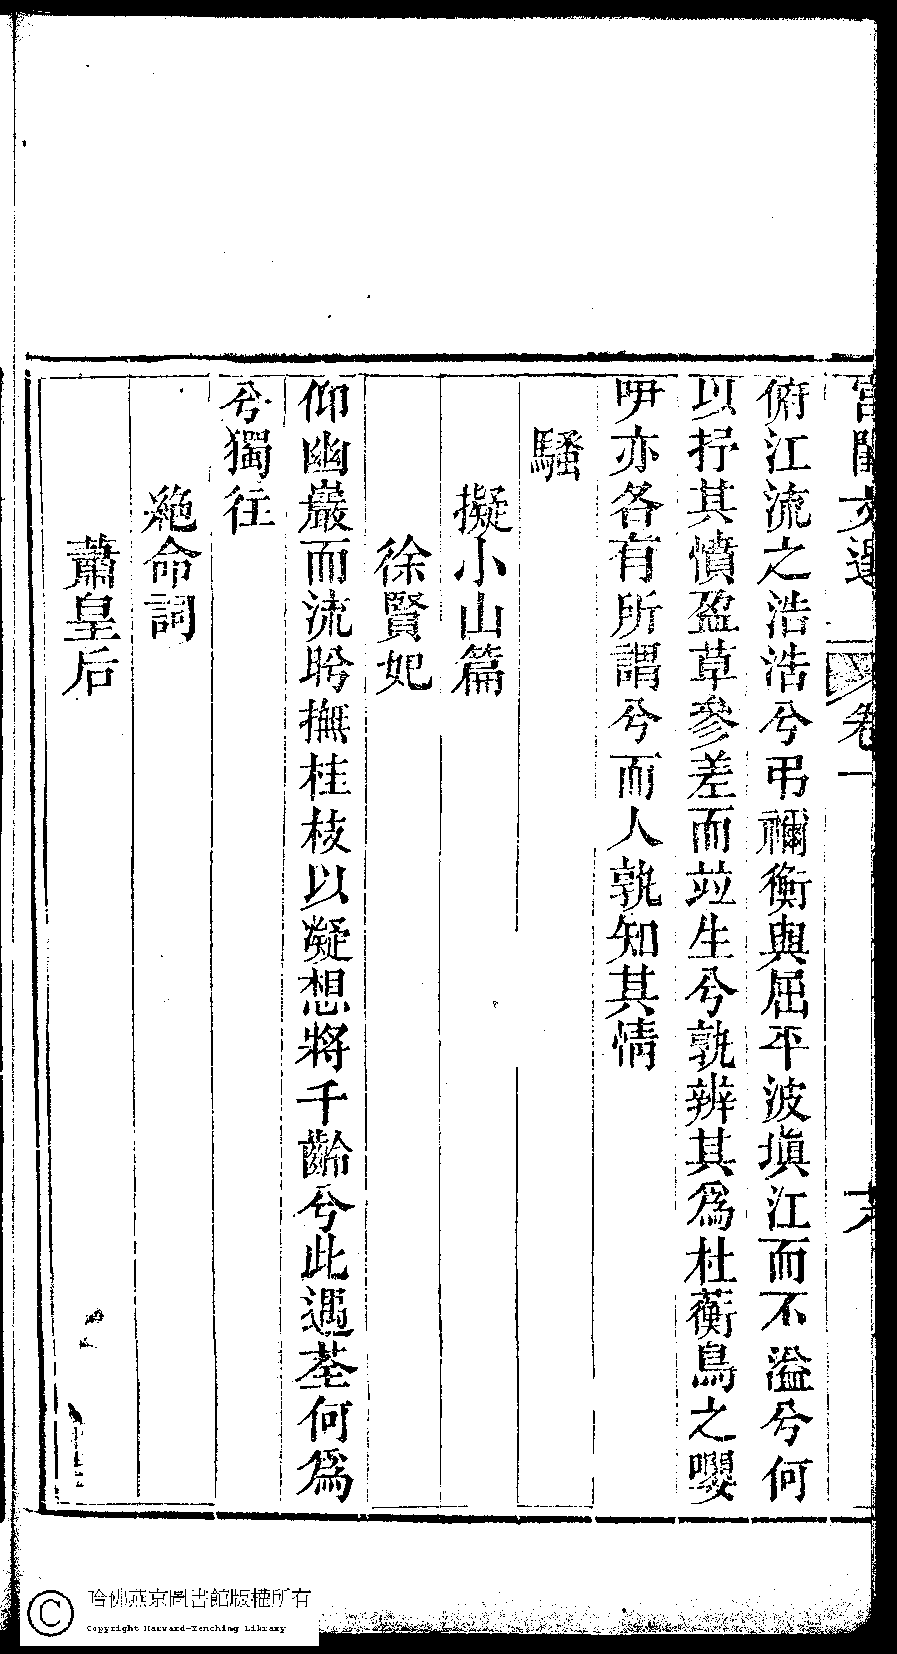 宮閨文選 卷一 六
俯江流之浩浩兮弔禰衡與屈平波塡江而不溢兮何
以抒其憤盈草參差而竝生兮孰辨其爲杜蘅鳥之嚶
咿亦各有所謂兮而人孰知其情
騷
擬小山篇
徐賢妃
仰幽巖而流盻撫桂枝以凝想將千齡兮此遇荃何爲
兮獨往
絶命詞
蕭皇后
哈佛燕京圖書館版權所有
Copyright Harvard-Yenching Library